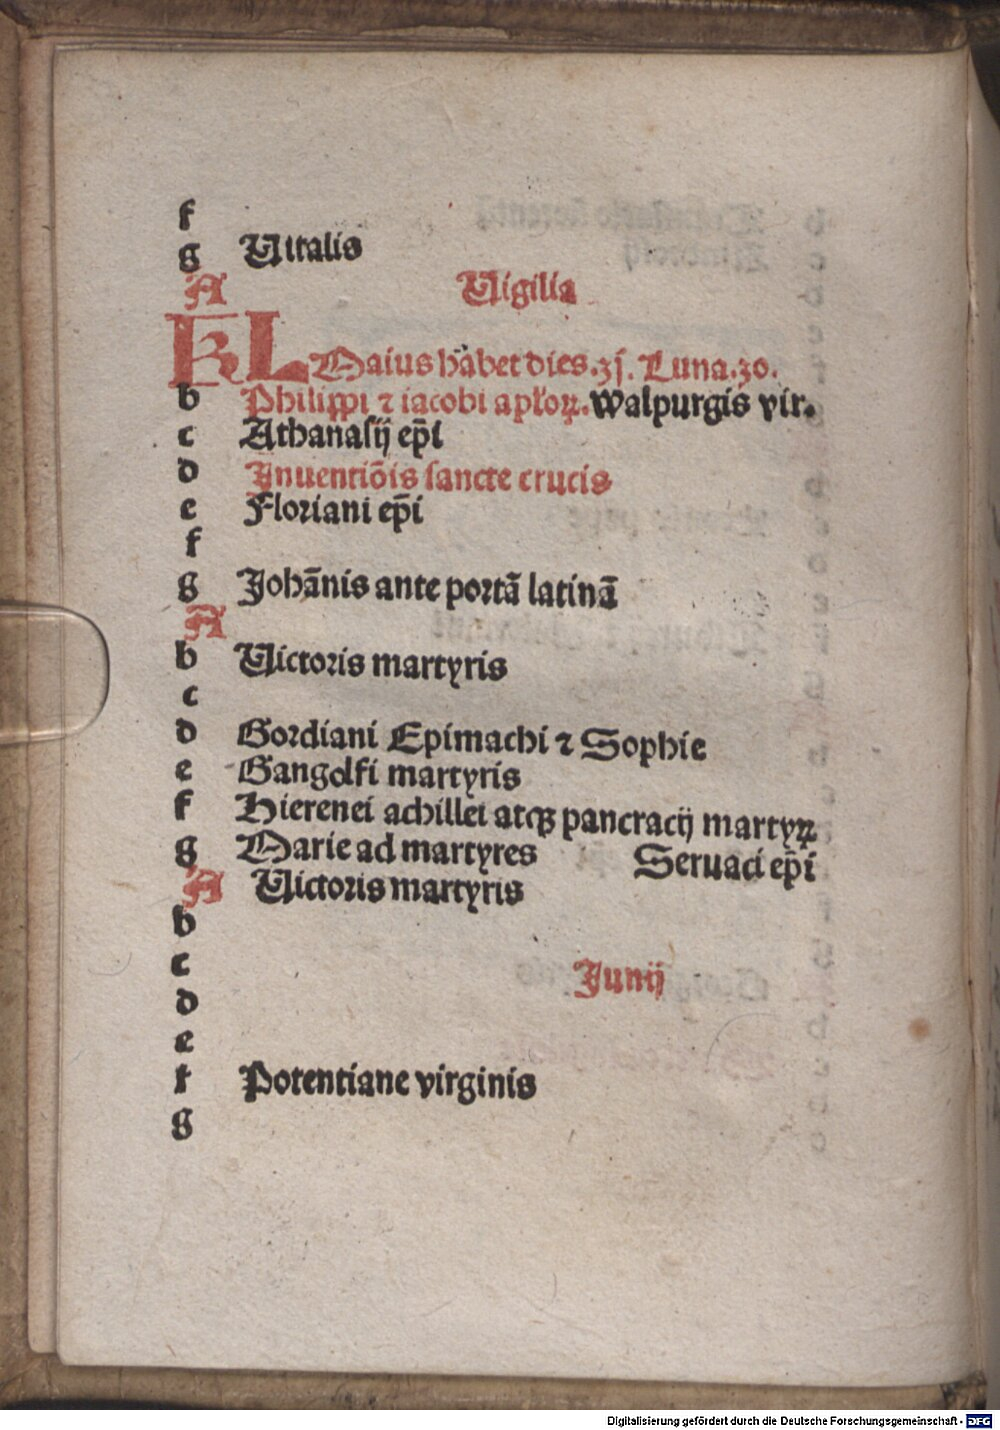 f
g Uitalis
A Uigilia
KL Maius habet dies.3j. Luna.30.
b Philippi ⁊ iacobi apl'oꝝ. walpurgis vir.
c Athanasij ep̄i
d Inuentiōis sancte crucis
e Floriani ep̄i
f
g Johānis ante portā latinā
A
b Uictoris martyris
c
d Gordiani Epimachi ⁊ Sophie
e Gangolfi martyris
f Hierenei achillei atqꝫ pancracij martyꝝ
g Marie ad martyres Seruaci ep̄i
A Uictoris martyris
b
c Junij
d
e
f Potentiane virginis
g
Digitalisierung gefördert durch die Deutsche Forschungsgemeinschaft - DFG